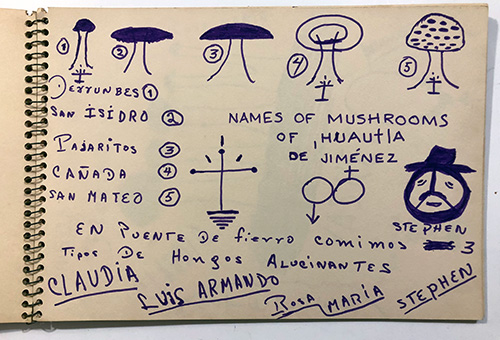 ① ② ③ ④ ⑤
DERRUNBES ①
SAN ISIDRO ②
PAJARITOS ③
CAÑADA ④
SAN MATEO ⑤
NAMES OF MUSHROOMS
OF HUAUTLA
DE JIMÉNEZ
STEPHEN
EN PUENTE DE FIERRO COMIMOS 3
TIPOS DE HONGOS ALUCINANTES
CLAUDIA LUIS ARMANDO ROSA MARÍA STEPHEN